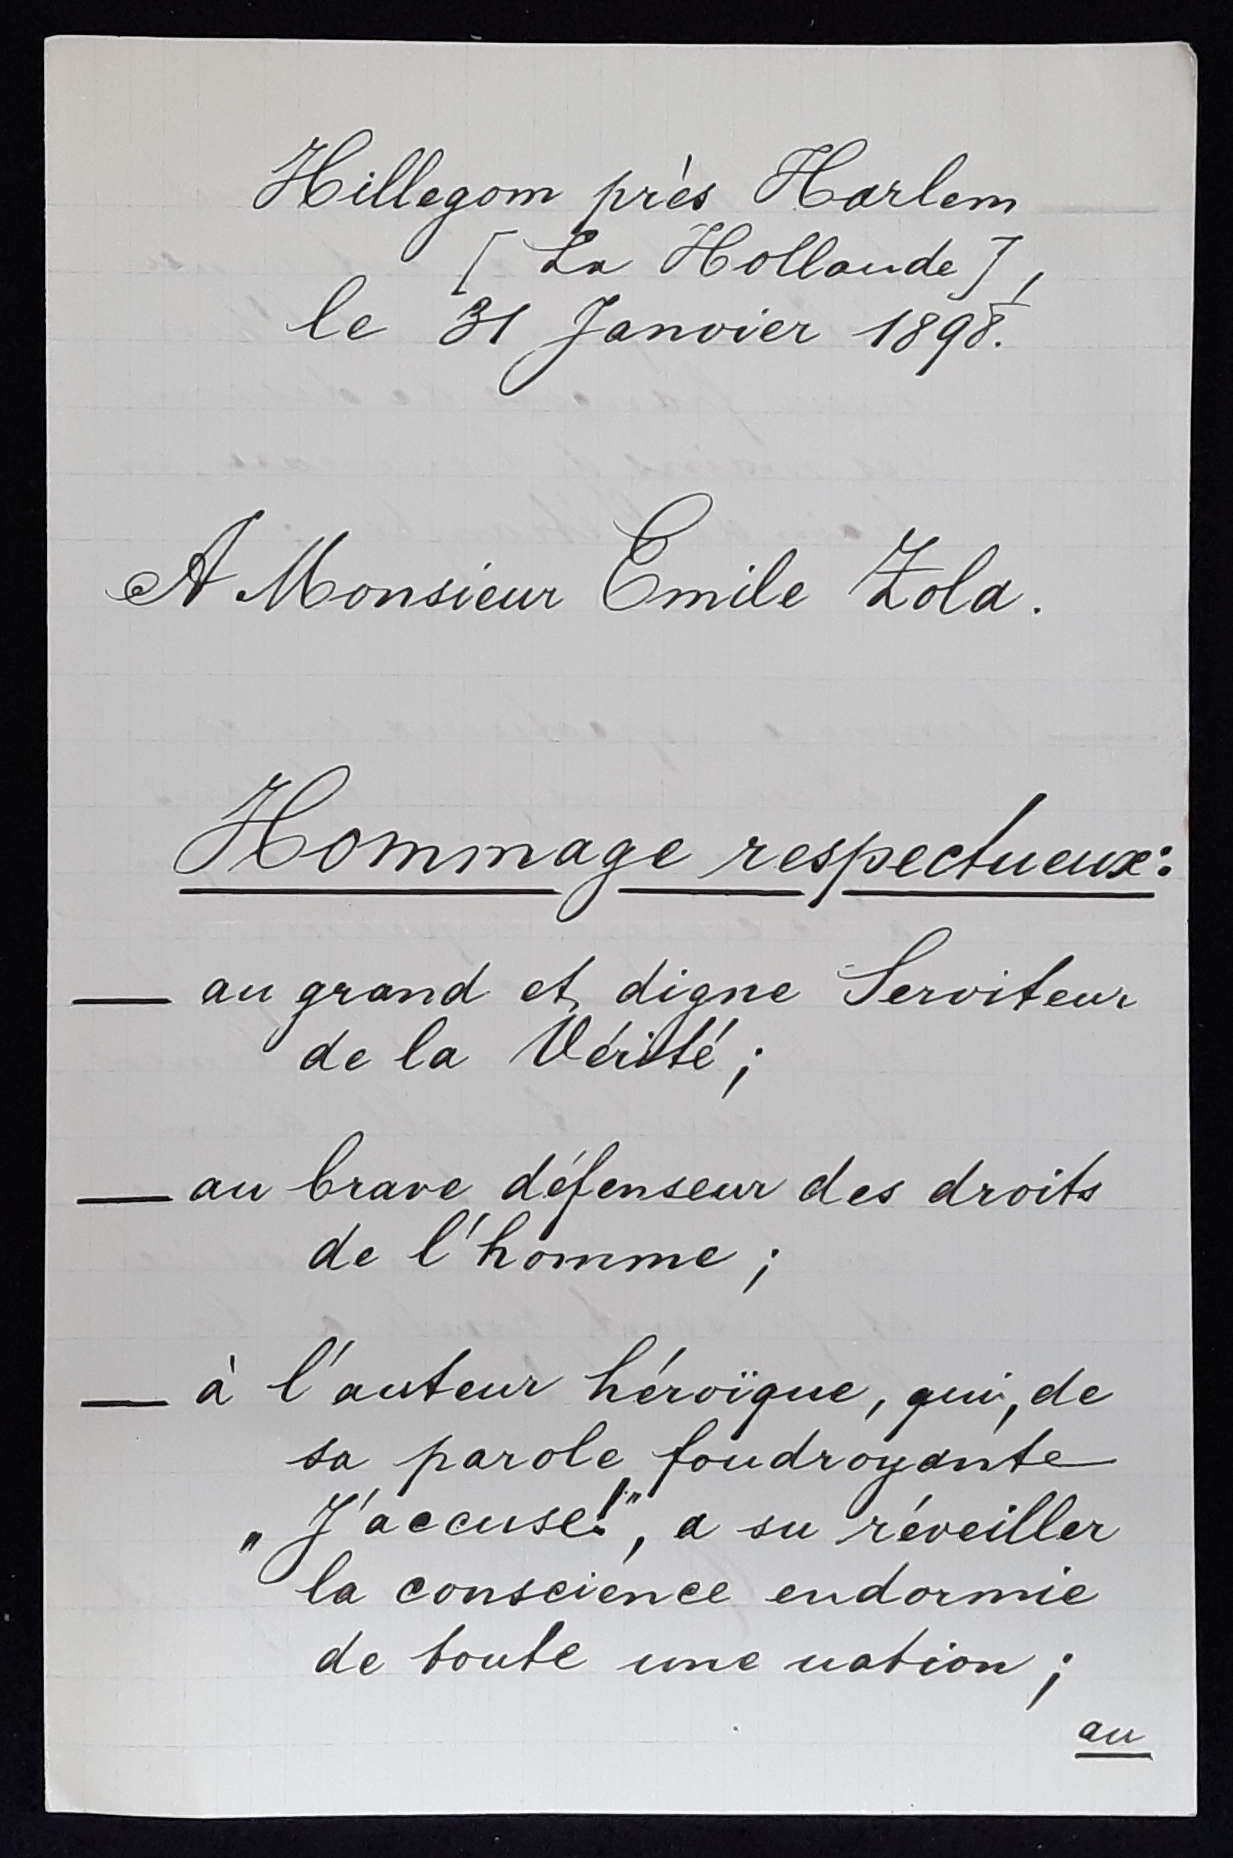 Hillegom près Harlem
[La Hollande],
le 31 Janvier 1898.
A Monsieur Emile Zola.
Hommage respectueux:
— au grand et digne Serviteur
de la Vérité;
— au brave défenseur des droits
de l'homme;
— à l'auteur héroïque, qui, de
sa parole foudroyante
„J'accuse!”, a su réveiller
la conscience endormie
de toute une nation;
au